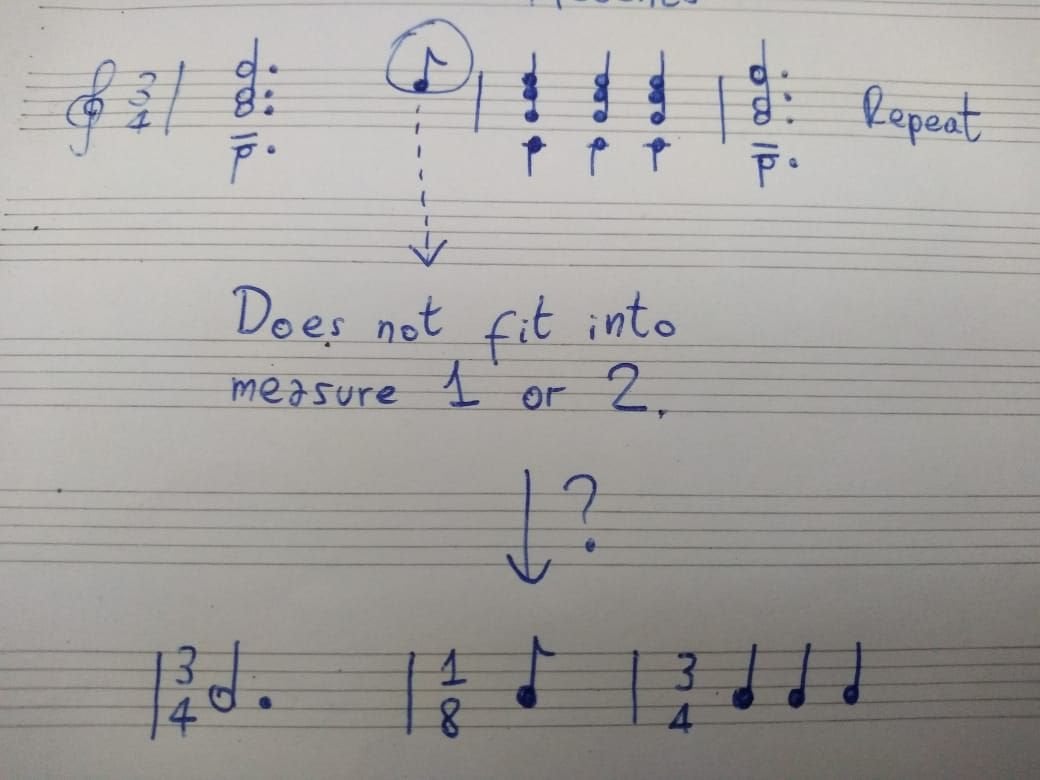 3
4
Repeat
Does not fit into
measure 1 or 2.
?
3 1 3
4 8 4